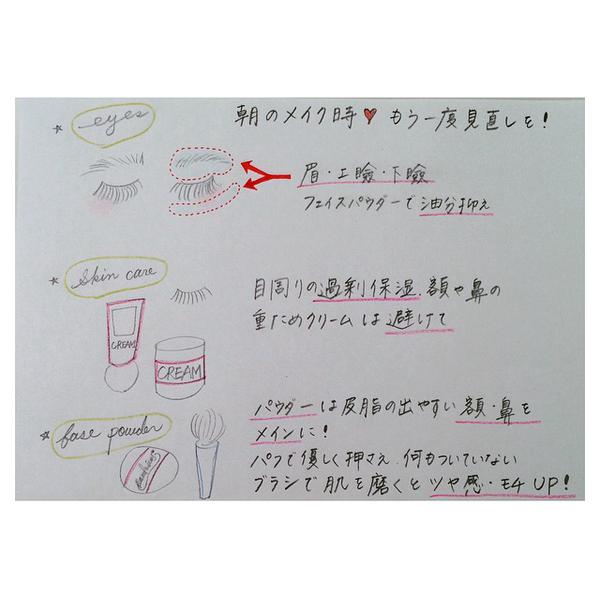 eyes
朝のメイク時♥もう一度見直しを!
眉・上瞼・下瞼
フェイスパウダーで油分抑え
skin care
目周りの過剰保湿、額や鼻の
重ためクリームは避けて
CREAM
CREAM
fase powder
パウダーは皮脂の出やすい額・鼻を
メインに!
パフで優しく押さえ、何もついていない
ブラシで肌を磨くとツヤ感・モチUP!